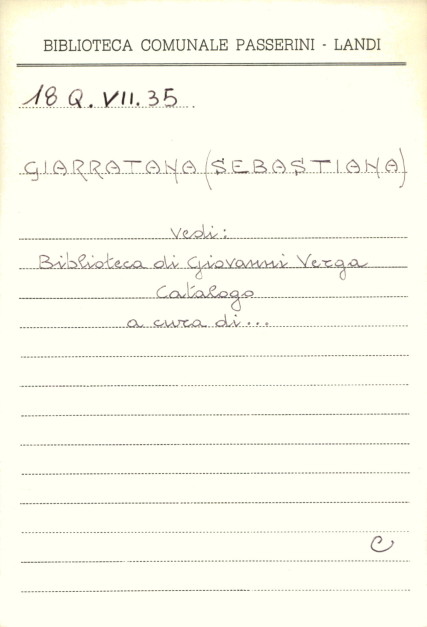 BIBLIOTECA COMUNALE PASSERINI - LANDI
18 Q. VII. 35
GIARRATANA (SEBASTIANA)
Vedi:
Biblioteca di Giovanni Verga
Catalogo
a cura di...
C